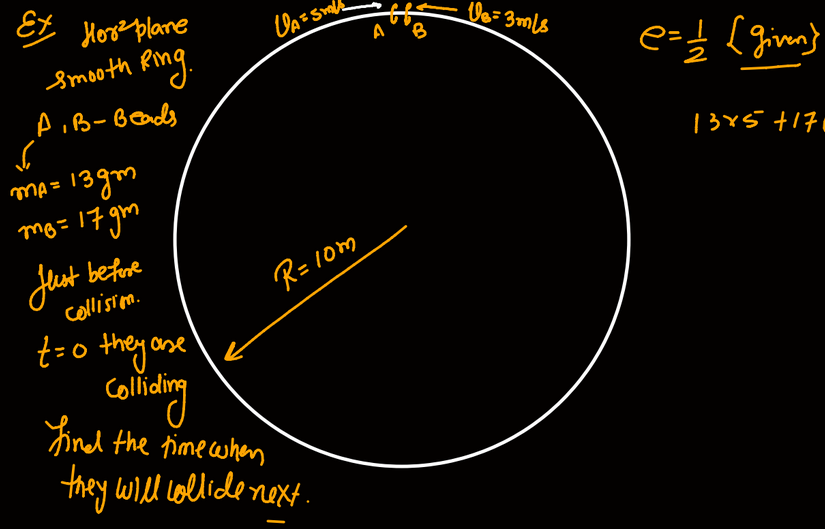 Ex Horz plane
smooth Ring.
A, B - Beads
mA = 13gm
mB = 17gm
Just before
collision.
t=0 they are
colliding
find the time when
they will collide next.
VA = 5m/s
VB = 3m/s
A B
R = 10m
e = 1/2 {given}
13x5 + 17